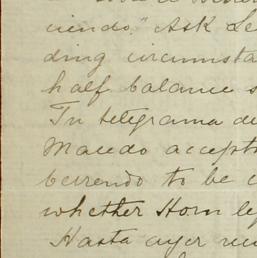 ciendo." Ask Le
ding circumsta
half balance s
Tu telegrama de
Macedo accept
berrendo to be
whether Horn le
Hasta ayer